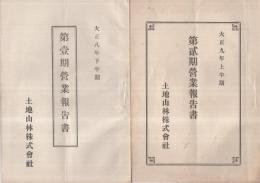 大正八年下半期
第壹期營業報告書
土地山林株式會社
大正九年上半期
第貳期營業報告書
土地山林株式會社